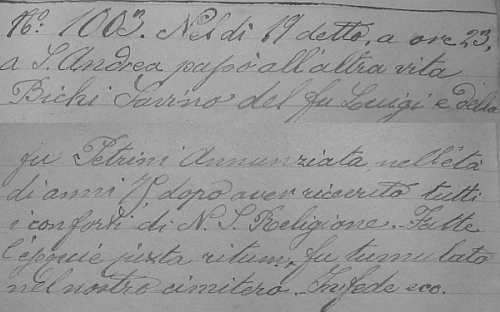 No. 1003. Nel dì 19 detto, a ore 23,
a S. Andrea passò all'altra vita
Bichi Savino del fu Luigi e della
fu Petrini Annunziata, nell'età
di anni 75, dopo aver ricevuto tutti
i conforti di N. S. Religione. - Fatte
l'esequie juxta ritum, fu tumulato
nel nostro cimitero. - In fede ecc.